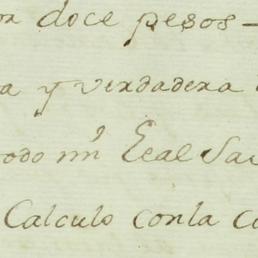 doce pesos
a y verdadera
odo mi Leal Sa
Calculo conla c